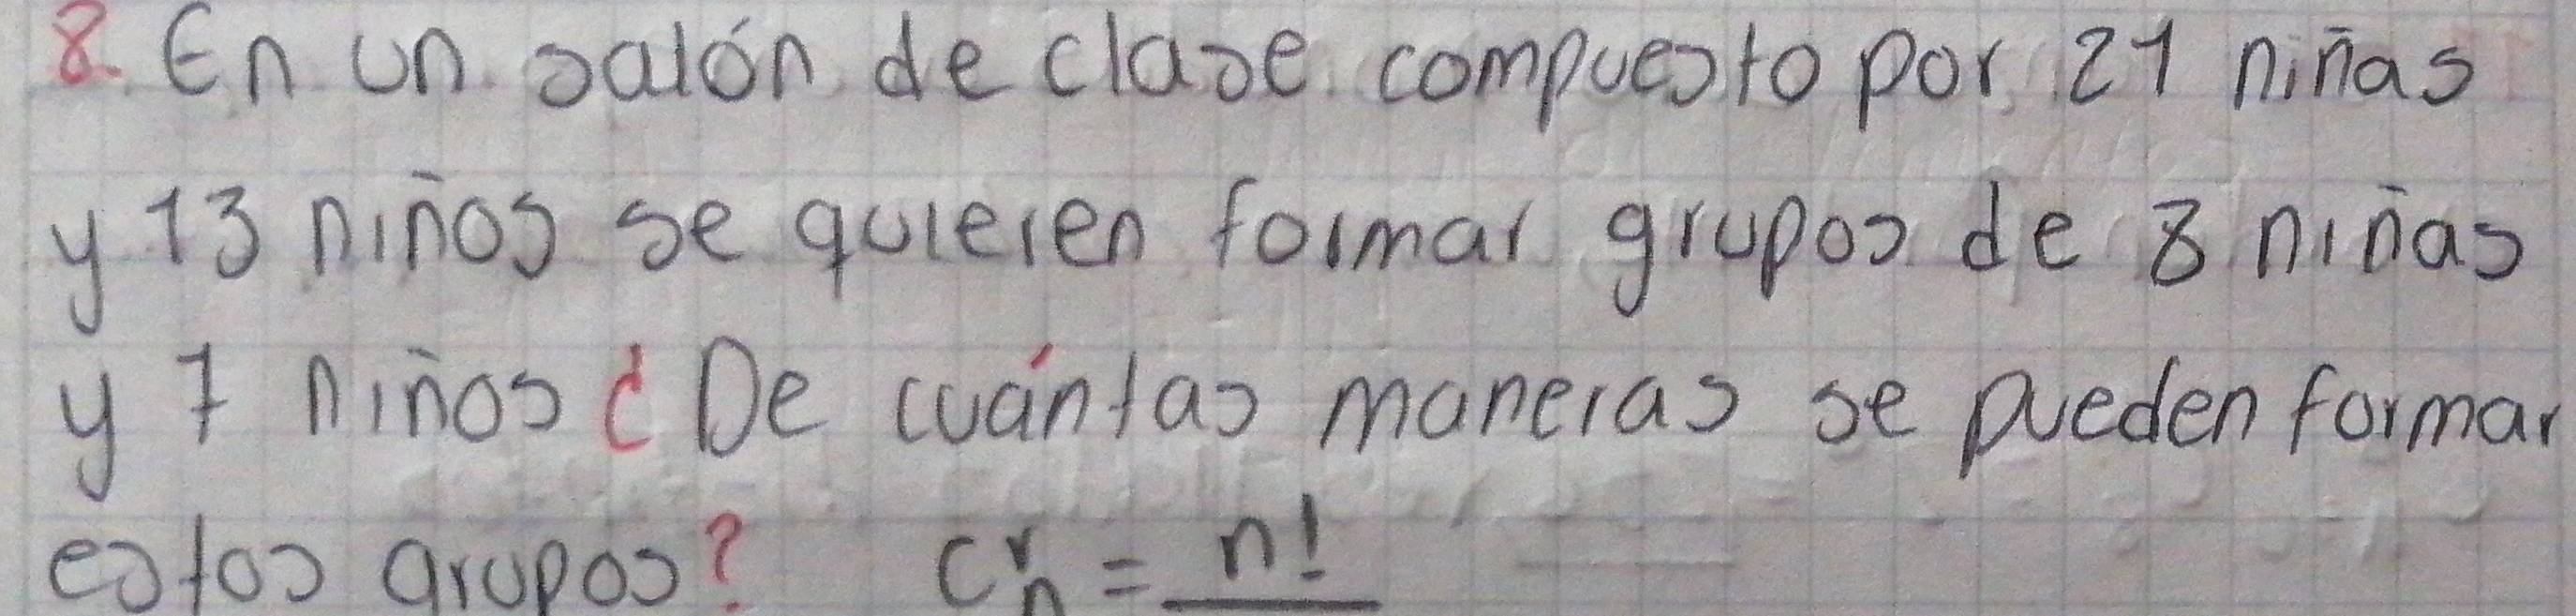 8. En un salón de clase compuesto por 21 niñas
y 13 niños se quieren formar grupos de 8 niñas
y 7 niños ¿De cuántas maneras se pueden formar
estos grupos? C^r_n = n!